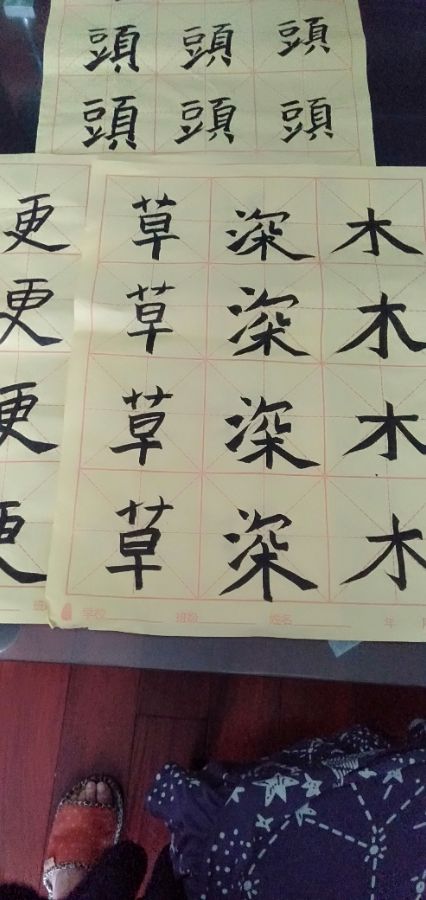 頭 頭 頭
頭 頭 頭
更 草 深 木
更 草 深 木
更 草 深 木
更 草 深 木
班 学校 班级 姓名 年 月